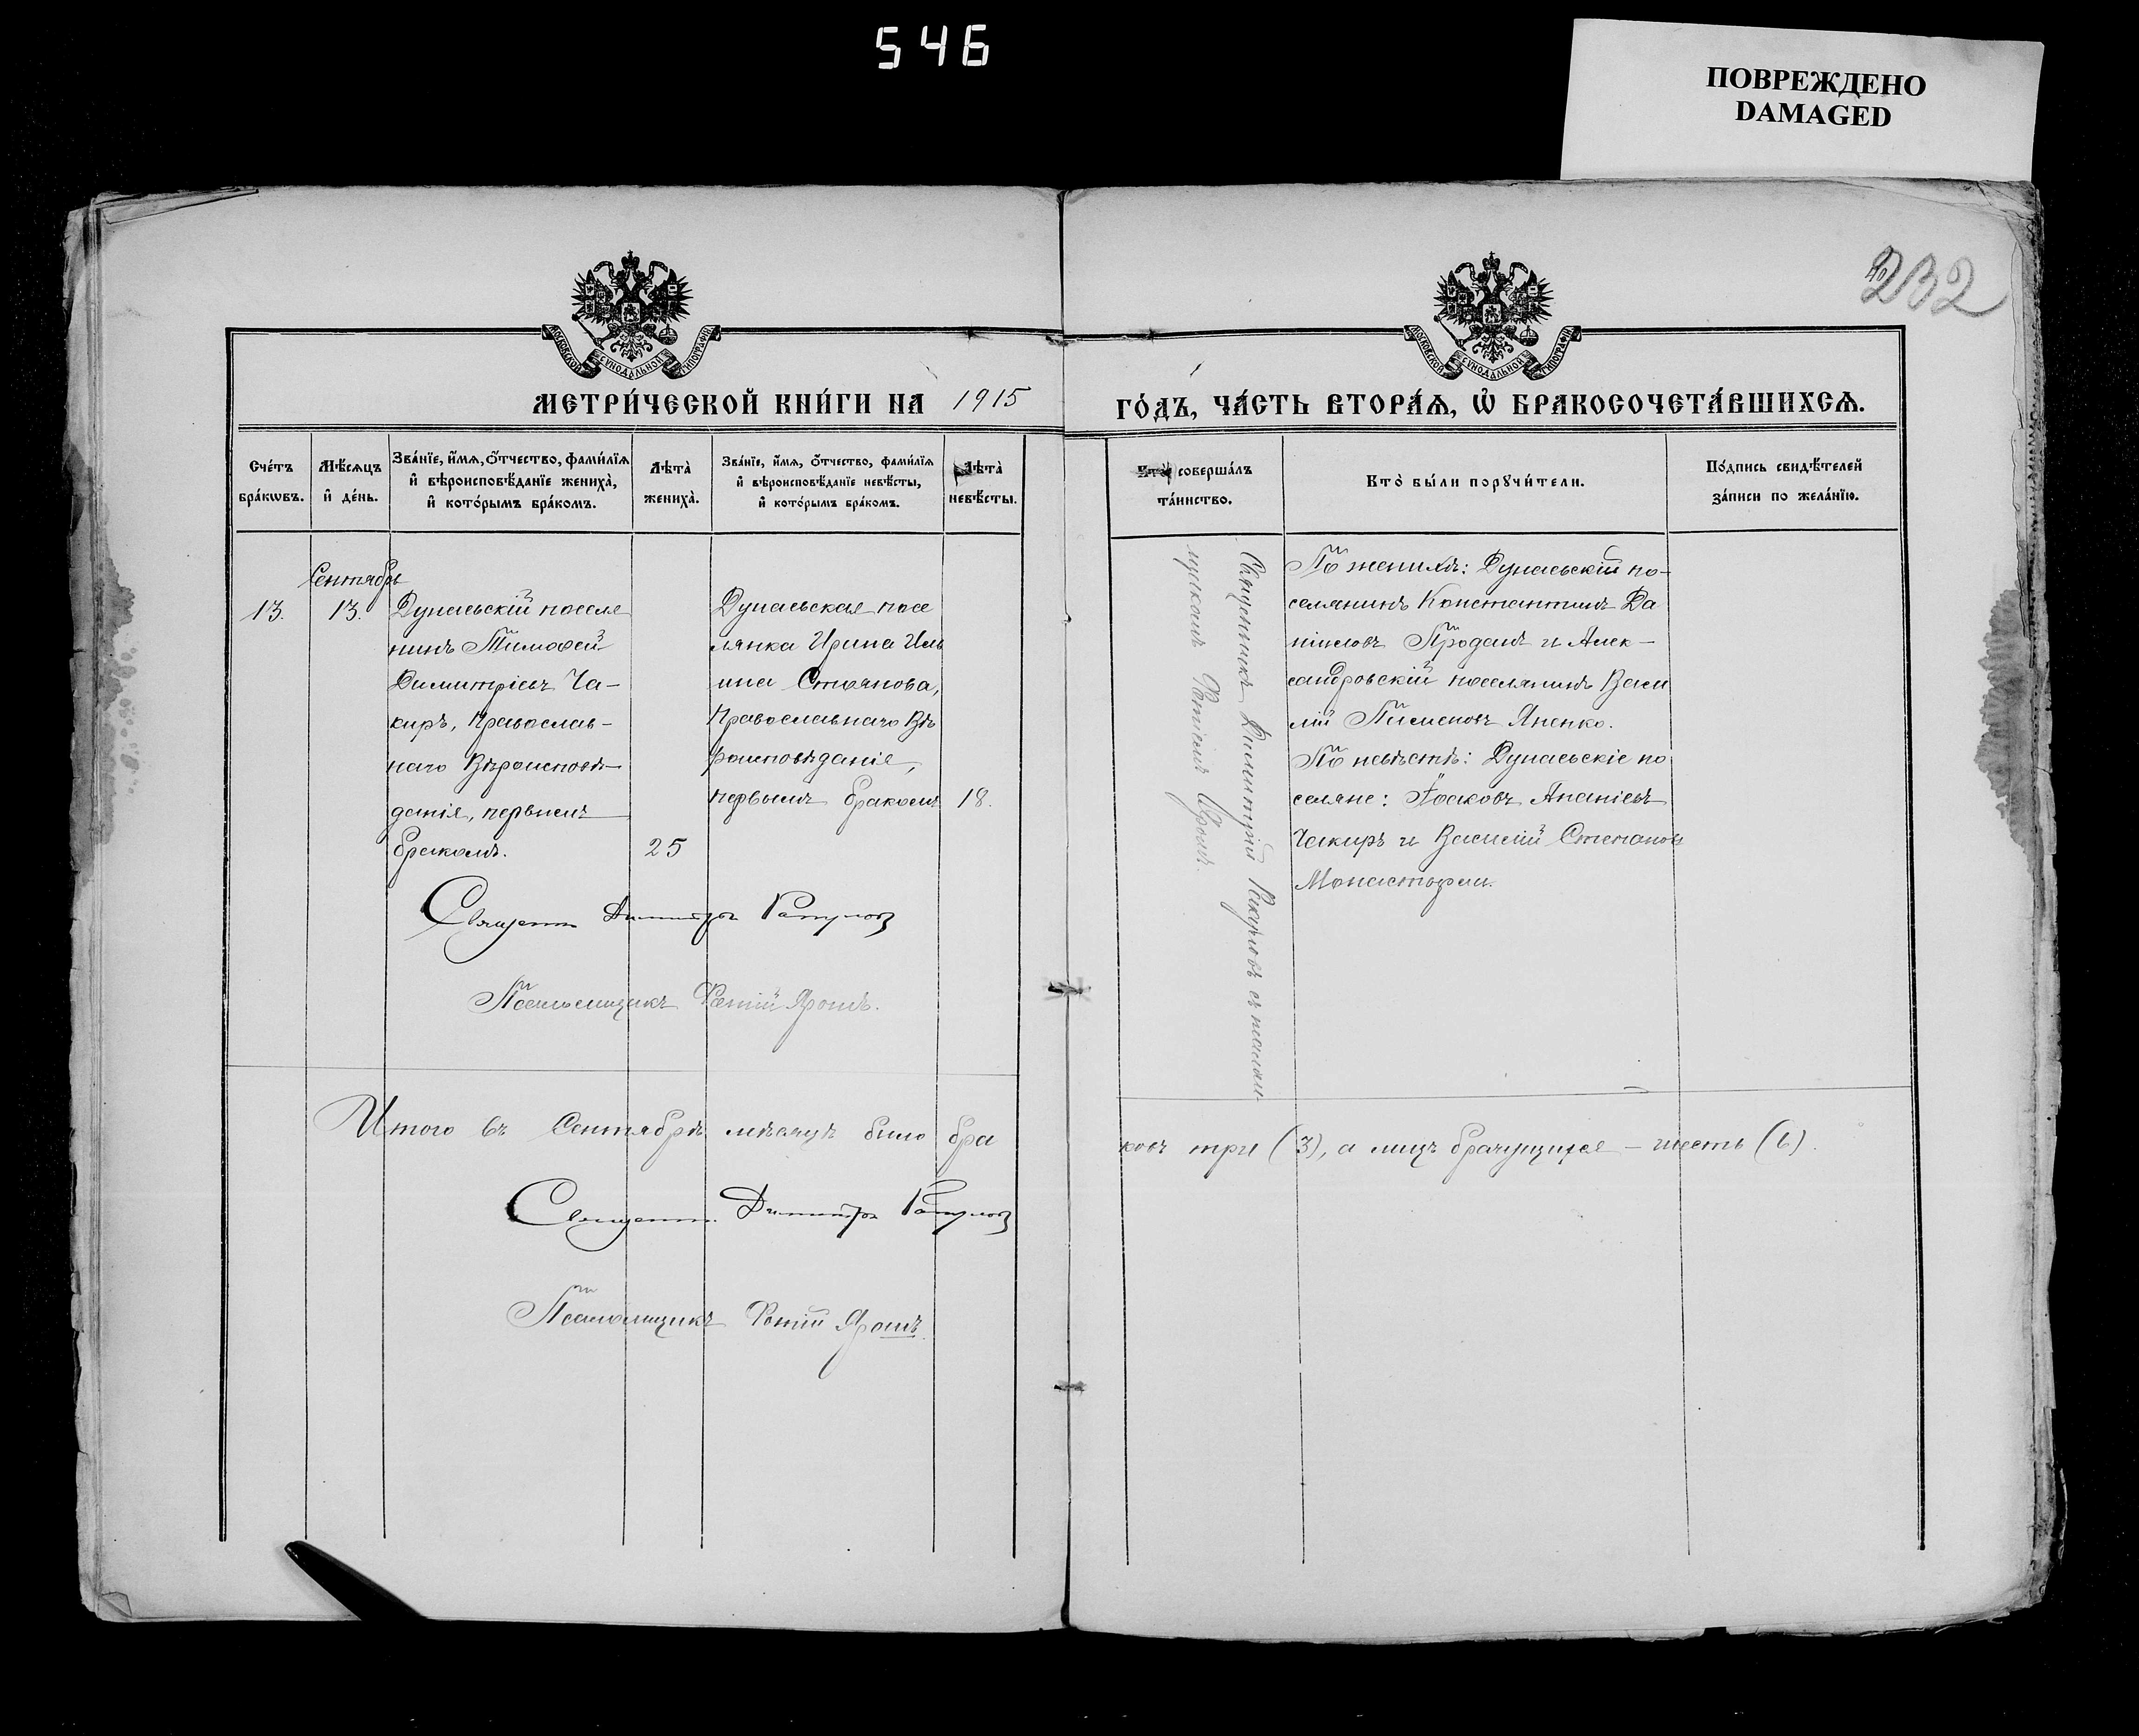 546
ПОВРЕЖДЕНО
DAMAGED
232
МЕТРИ́ЧЕСКОЙ КНИ́ГИ НА 1915
ГО́ДЪ, ЧА́СТЬ ВТОРА́Ѧ, Ѡ҆ БРАКОСОЧЕТА́ВШИХСѦ.
МОСКОВСКОЙ СѴНОДАЛЬНОЙ ТИПОГРАФІИ
МОСКОВСКОЙ СѴНОДАЛЬНОЙ ТИПОГРАФІИ
Сче́тъ
бра́кѡвъ.
Мѣ́сѧцъ
и҆ де́нь.
Зва́нїе, и҆́мѧ, ѻ҆́тчество, фами́лїѧ
и҆ вѣроисповѣ́данїе жениха̀,
и҆ кото́рымъ бра́комъ.
Лѣта̀
жениха̀.
Зва́нїе, и҆́мѧ, ѻ҆́тчество, фами́лїѧ
и҆ вѣроисповѣ́данїе невѣ́сты,
и҆ кото́рымъ бра́комъ.
Лѣта̀
невѣ́сты.
Кто̀ соверша́лъ
та́инство.
Кто̀ бы́ли порꙋчи́тели.
По́дпись свидѣ́телей
за́писи по жела́нїю.
Сентябрь
13.
13.
Дунаевскій поселя
нинъ Тимофей
Димитріевъ Ча-
киръ, Православ-
наго Вѣроисповѣ-
данія, первымъ
бракомъ.
25
Дунаевская посе
лянка Ирина Иль
ина Стоянова,
Православнаго Вѣ
роисповѣданія,
первымъ бракомъ
18.
Священникъ Димитрій с псалом-
щикомъ Фотіемъ Ярошъ.
По женихѣ: Дунаевскій по-
селянинъ Константинъ Да
ніиловъ Проданъ и Алек-
сандровскій поселянинъ Васи
лій Пименовъ Яненко.
По невѣстѣ: Дунаевскіе по
селяне: Іаковъ Ананіевъ
Чакиръ и Василій Степановъ
Монастырли.
Священ. Димитрій
Псаломщикъ Фотій Ярошъ.
Итого въ Сентябрѣ мѣсяцѣ было бра
ковъ три (3), а лицъ брачущихся - шесть (6).
Священ. Димитрій
Псаломщикъ Фотій Ярошъ.